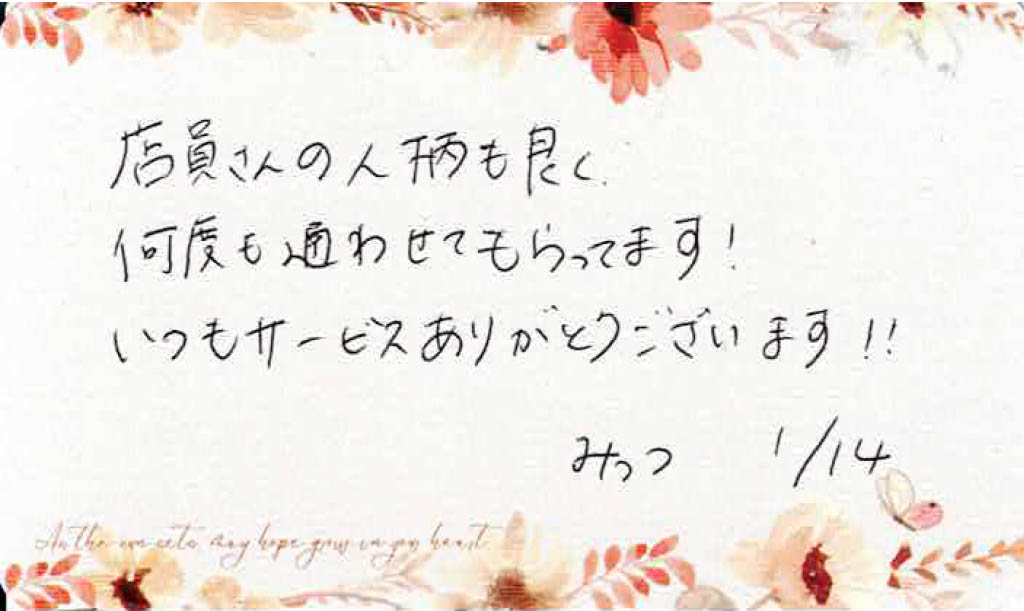 店員さんの人柄も良く
何度も通わせてもらってます!
いつもサービスありがとうございます!!
みっつ 1/14
may hope grow in your heart